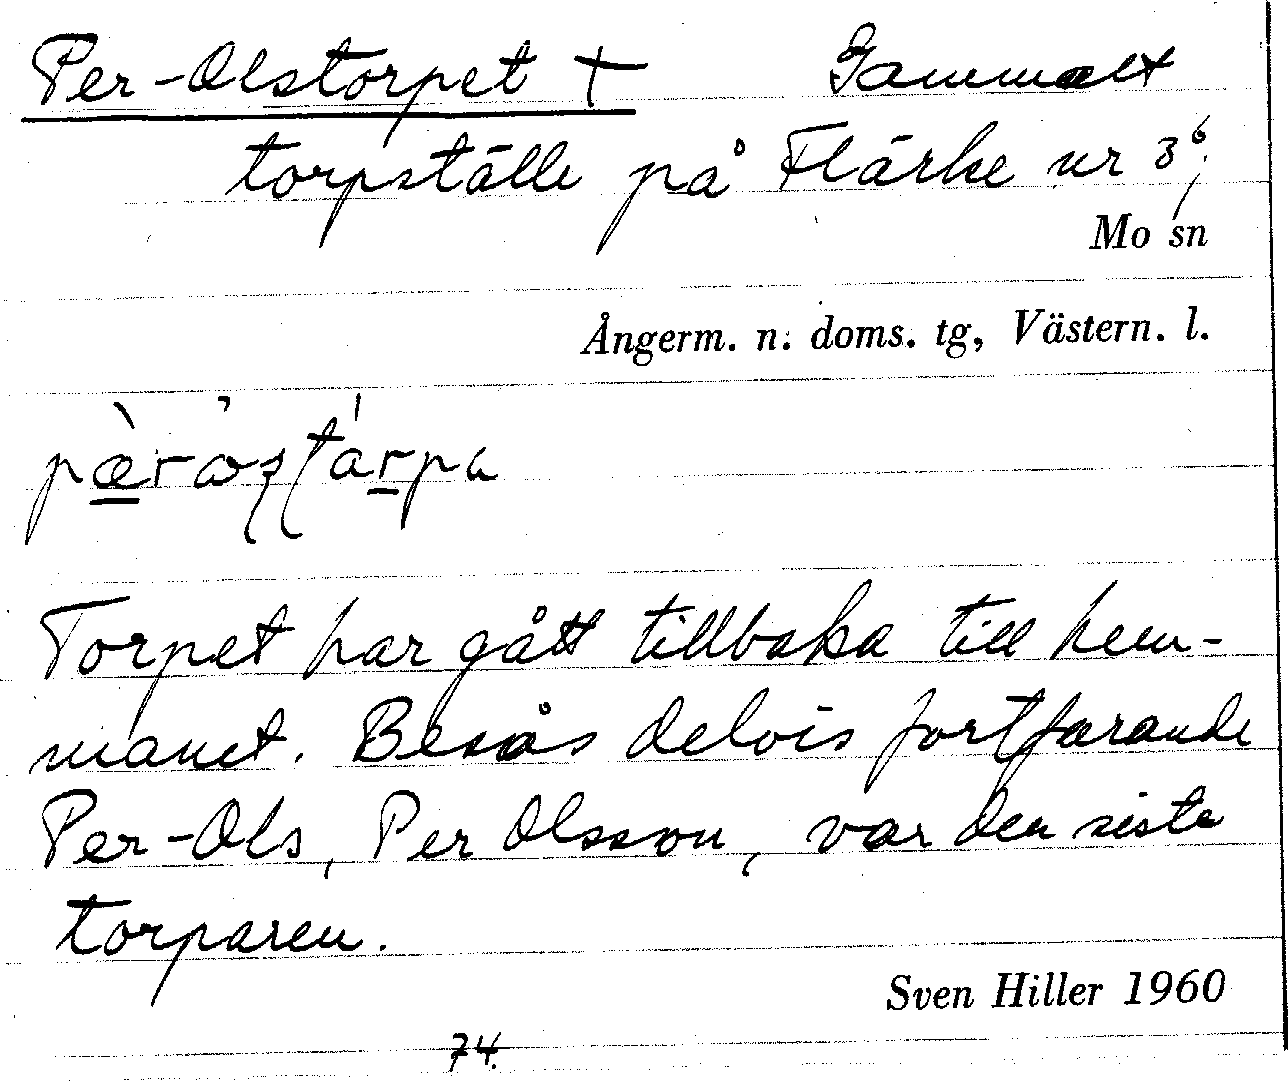 Per-Olstorpet † Gammalt
torpställe på Flärke nr 3⁶,
Mo sn
Ångerm. n. doms. tg, Västern. l.
Torpet har gått tillbaka till hem-
manet. Besås delvis fortfarande
Per-Ols, Per Olsson, var den siste
torparen.
Sven Hiller 1960
74.